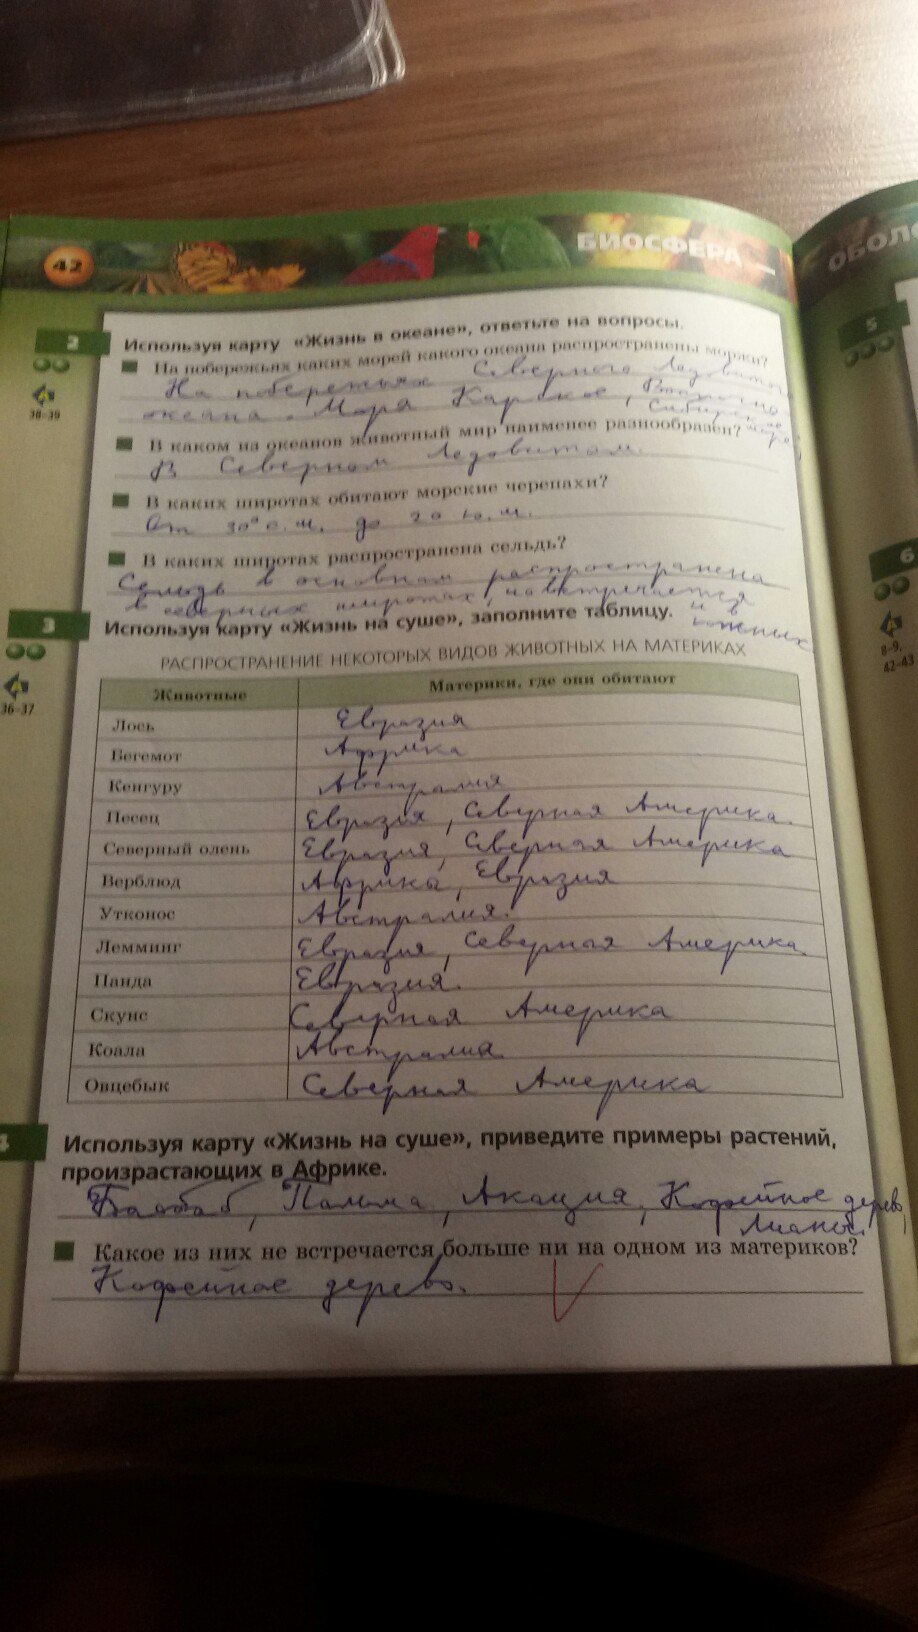 42
БИОСФЕРА —
ОБОЛО
2
Используя карту «Жизнь в океане», ответьте на вопросы.
38–39
На побережьях каких морей какого океана распространены моржи?
На побережьях Северного Ледовитого
океана. Моря Карское, Восточно
Сибирское
море
В каком из океанов животный мир наименее разнообразен?
В Северном Ледовитом.
В каких широтах обитают морские черепахи?
От 30° с.ш. до 20 ю.ш.
В каких широтах распространена сельдь?
Сельдь в основном распространена
в северных широтах, но встречается
и в
южных
3
Используя карту «Жизнь на суше», заполните таблицу.
36–37
РАСПРОСТРАНЕНИЕ НЕКОТОРЫХ ВИДОВ ЖИВОТНЫХ НА МАТЕРИКАХ
Животные Материки, где они обитают
Лось Евразия
Бегемот Африка
Кенгуру Австралия
Песец Евразия, Северная Америка.
Северный олень Евразия, Северная Америка
Верблюд Африка, Евразия
Утконос Австралия.
Лемминг Евразия, Северная Америка
Панда Евразия.
Скунс Северная Америка
Коала Австралия.
Овцебык Северная Америка
4
Используя карту «Жизнь на суше», приведите примеры растений,
произрастающих в Африке.
Баобаб, Пальма, Акация, Кофейное дерево,
Какое из них не встречается больше ни на одном из материков?
Кофейное дерево.
5
6
8–9,
42–43